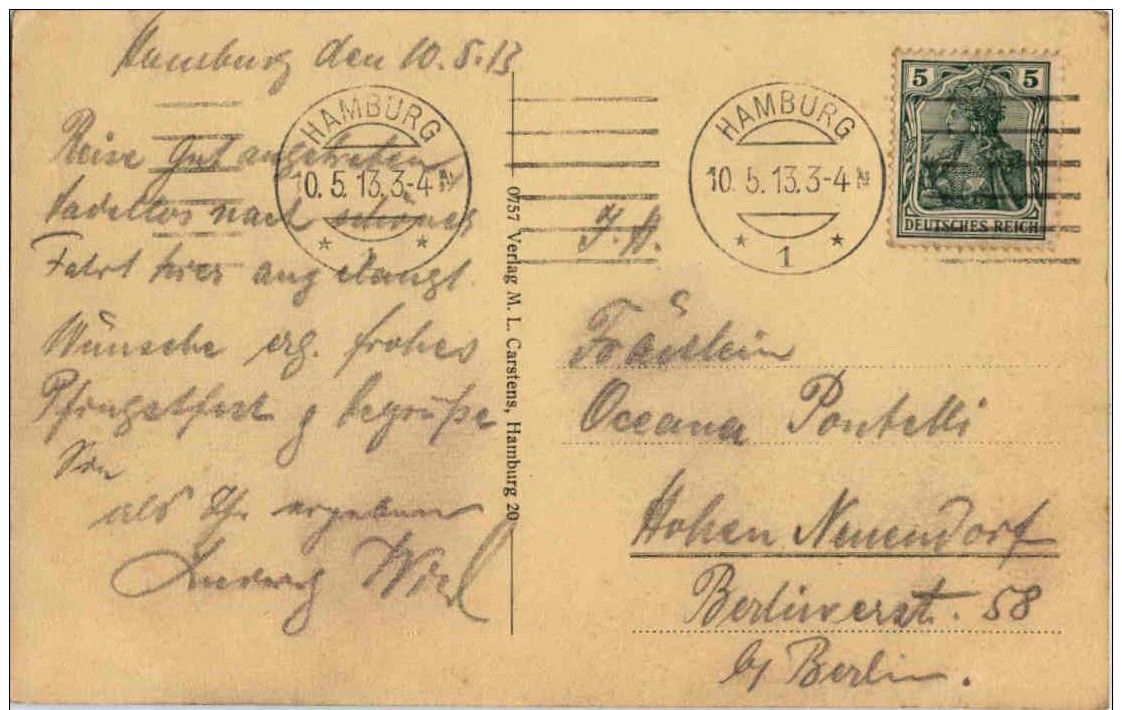 Hamburg den 10.5.13
Reise gut angetreten
Tadellos nach schöner
Fahrt hier angelangt.
Wünsche erg. frohes
Pfingstfest & begrüße
Sie
als Ihr ergebener
Ludwig
HAMBURG
10.5.13.3-4 N
* 1 *
HAMBURG
10.5.13.3-4 N
* 1 *
5 5
DEUTSCHES REICH
0757 Verlag M. L. Carstens, Hamburg 20
Fräulein
Oceana Pontelli
Hohen Neuendorf
Berlinerstr. 58
b/ Berlin.